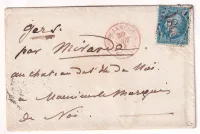 Gers.
par Mirande
au chateau de l'Ile de Noé
à Monsieur le Marquis
de Noé.